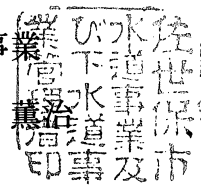 佐世保市
水道事業及
び下水道事
業管理者印
事業
薫治